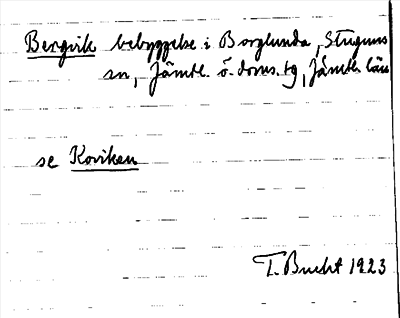 Bergvik bebyggelse i Borglunda, Stuguns
sn, Jämtl. ö. doms. tg, Jämtl. län
se Koviken
T. Bucht 1923